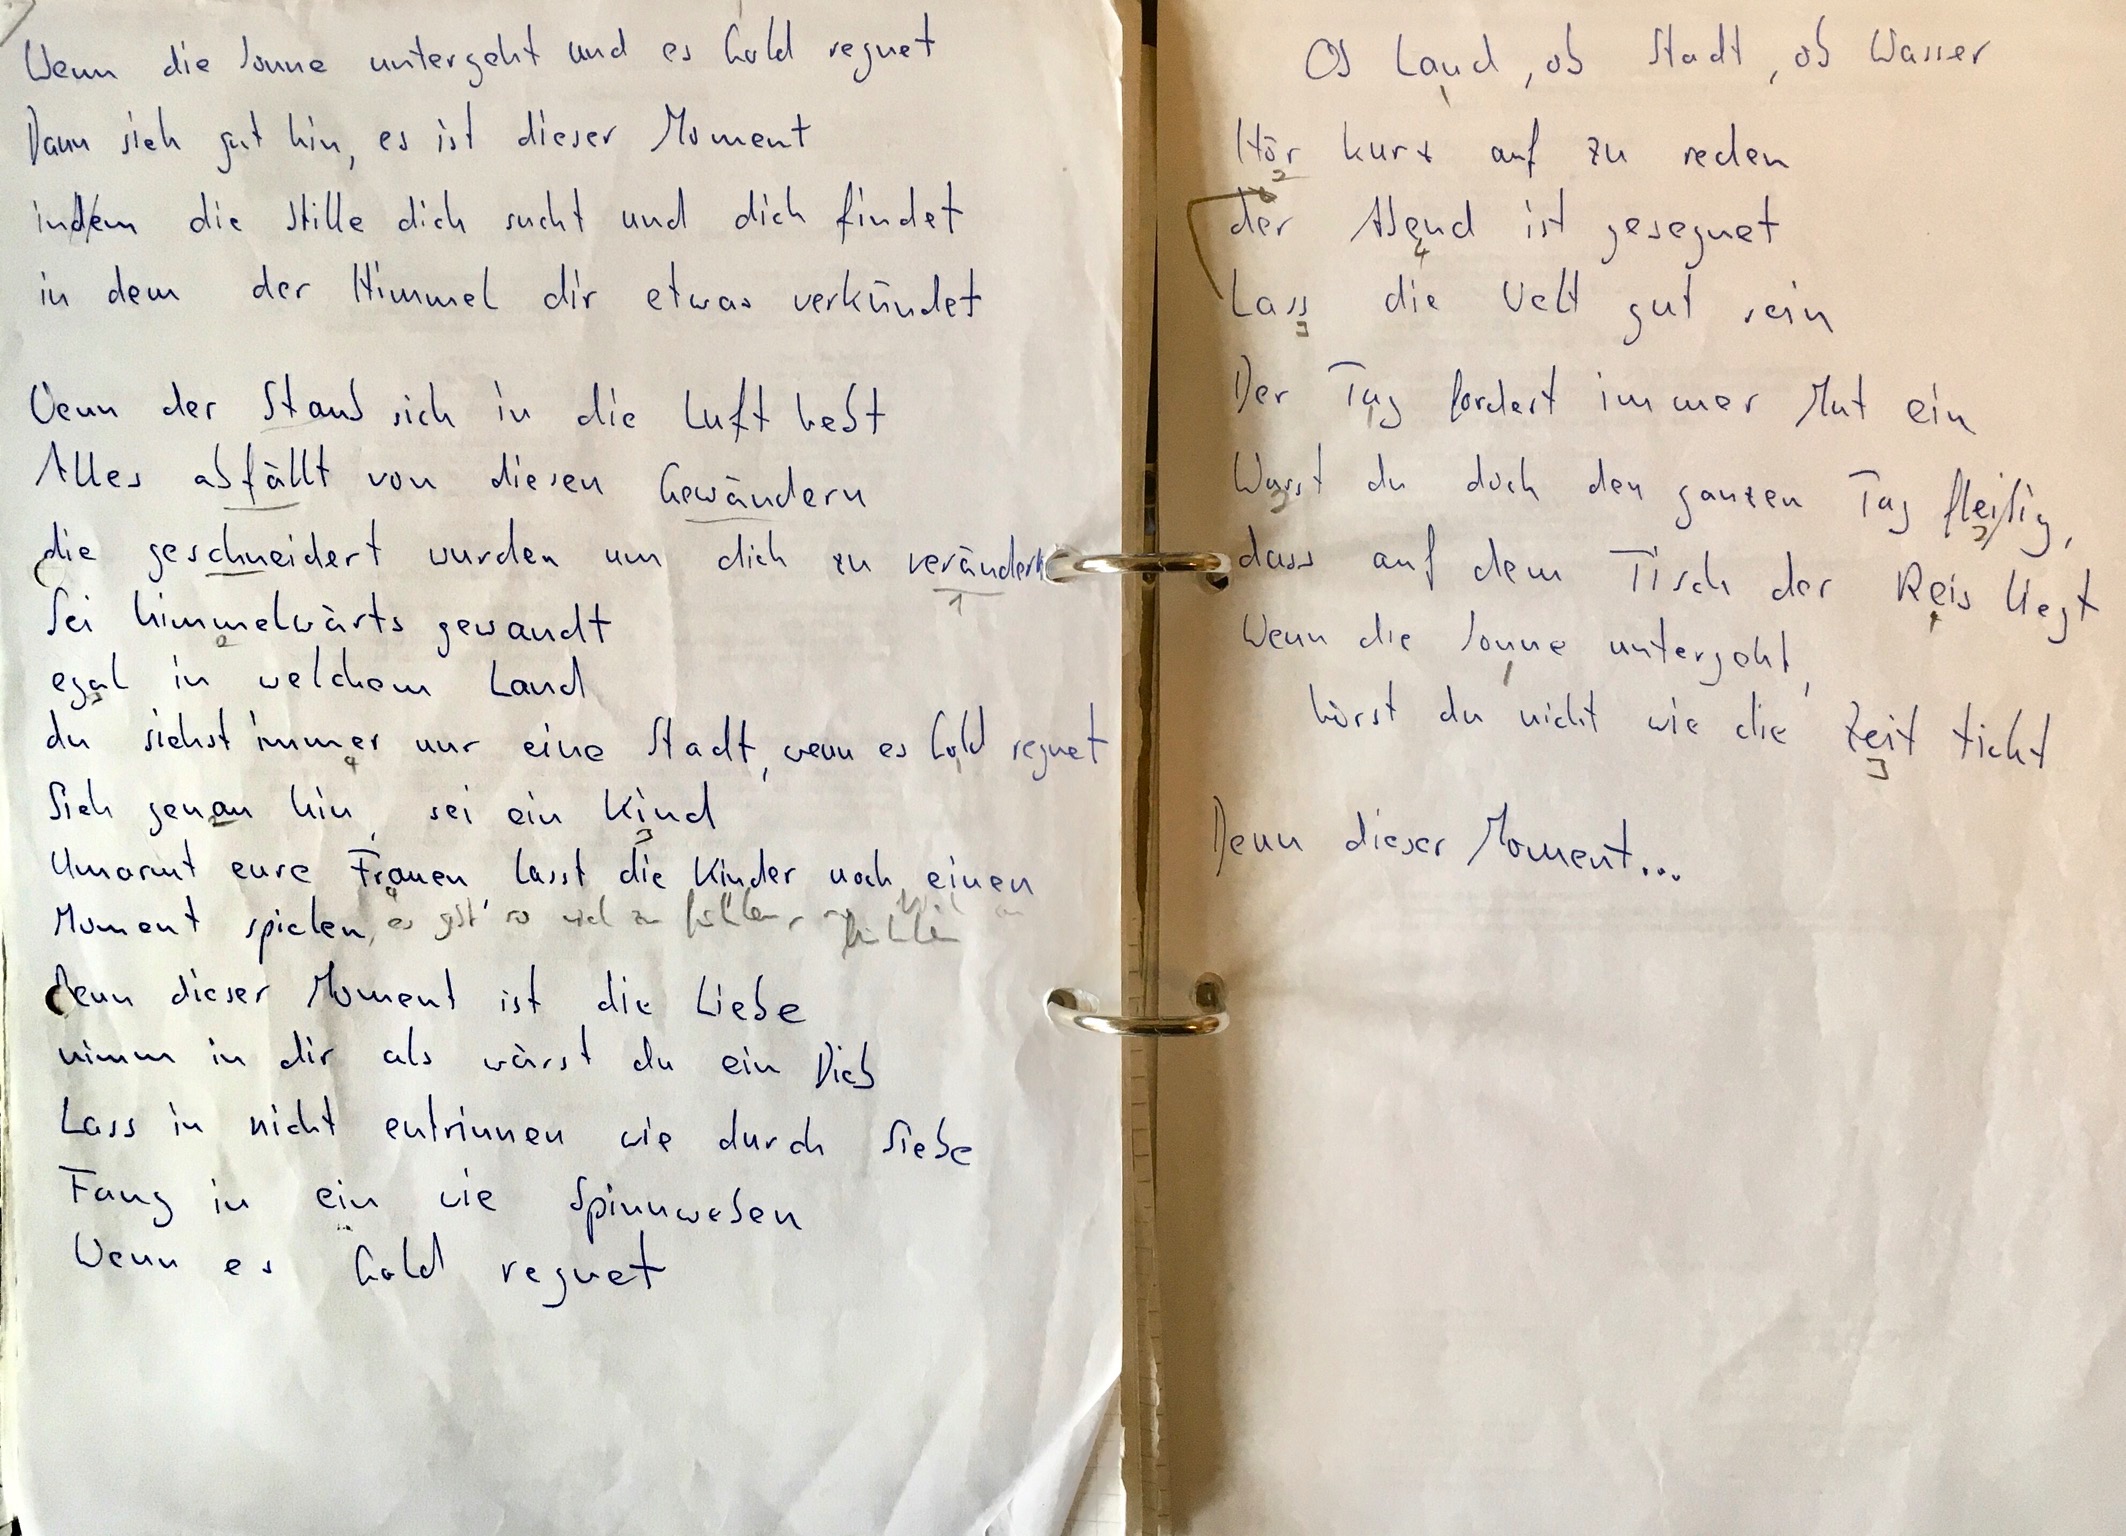 Wenn die Sonne untergeht und es Gold regnet
Dann sieh gut hin, es ist dieser Moment
in dem die Stille dich sucht und dich findet
in dem der Himmel dir etwas verkündet
Wenn der Staub sich in die Luft hebt
Alles abfällt von diesen Gewändern
die geschneidert wurden um dich zu verändern
1
Sei himmelwärts gewandt
2
egal in welchem Land
3
du siehst immer nur eine Stadt, wenn es Gold regnet
4
Sieh genau hin, sei ein Kind
2 3
Umarmt eure Frauen, lasst die Kinder noch einen
4
Moment spielen, es gibt so viel zu fühlen
Denn dieser Moment ist die Liebe
nimm in dir als wärst du ein Dieb
Lass in nicht entrinnen wie durch Siebe
Fang in ein wie Spinnweben
Wenn es Gold regnet
Ob Land, ob Stadt, ob Wasser
1
Hör kurz auf zu reden
2
der Abend ist gesegnet
4
Lass die Welt gut sein
3
Der Tag fordert immer Mut ein
1
Warst du doch den ganzen Tag fleißig,
2 3
dass auf dem Tisch der Reis liegt
4
Wenn die Sonne untergeht,
1
hörst du nicht wie die Zeit tickt
3
Denn dieser Moment...